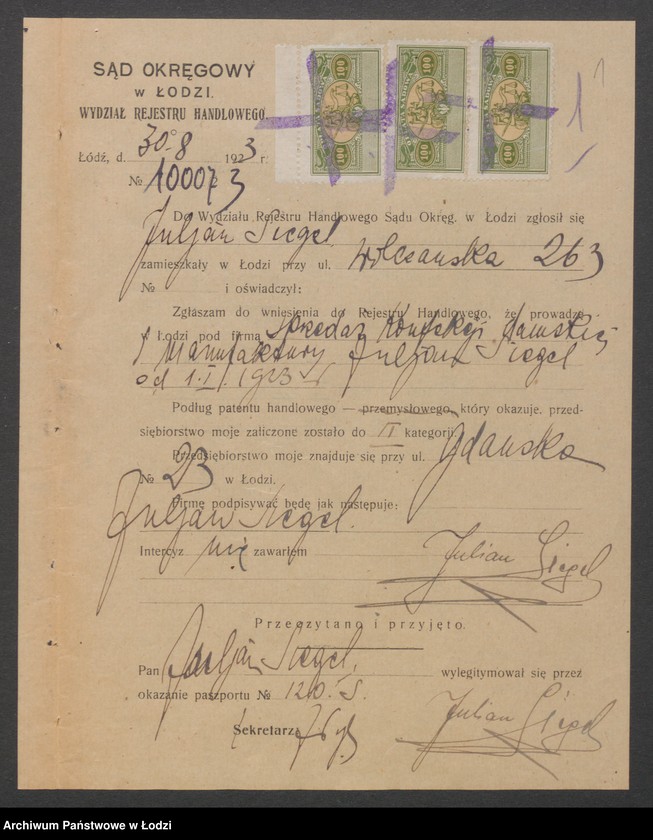 SĄD OKRĘGOWY
W ŁODZI.
WYDZIAŁ REJESTRU HANDLOWEGO.
Łódź, d. 30.8 1923 r.
№ 10007 3
100 100 100
Do Wydziału Rejestru Handlowego Sądu Okręg. w Łodzi zgłosił się
Juljan Siegel
zamieszkały w Łodzi przy ul. Wólczańska 263
№ i oświadczył:
Zgłaszam do wniesienia do Rejestru Handlowego, że prowadzę
w Łodzi pod firmą Sprzedaż Konfekcji damskiej
i Manufaktury Juljan Siegel
od 1.I. 1923 r
Podług patentu handlowego — przemysłowego, który okazuję, przed-
siębiorstwo moje zaliczone zostało do II kategorji.
Przedsiębiorstwo moje znajduje się przy ul. Gdańska
№ 23 w Łodzi.
Firmę podpisywać będę jak następuje:
Juljan Siegel.
Intercyz nie zawarłem
Julian Siegel
Przeczytano i przyjęto.
Pan Juljan Siegel, wylegitymował się przez
okazanie paszportu №
Julian Siegel
Sekretarz:
Archiwum Państwowe w Łodzi